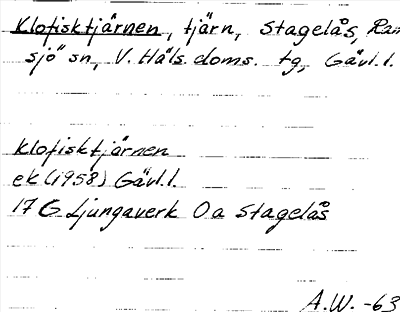 Klofisktjärnen, tjärn, Stagelås, Ram
sjö sn, V. Häls. doms. tg, Gävl. l.
Klofisktjärnen
ek (1958) Gävl. l.
17 G Ljungaverk 0a Stagelås
A.W. -63